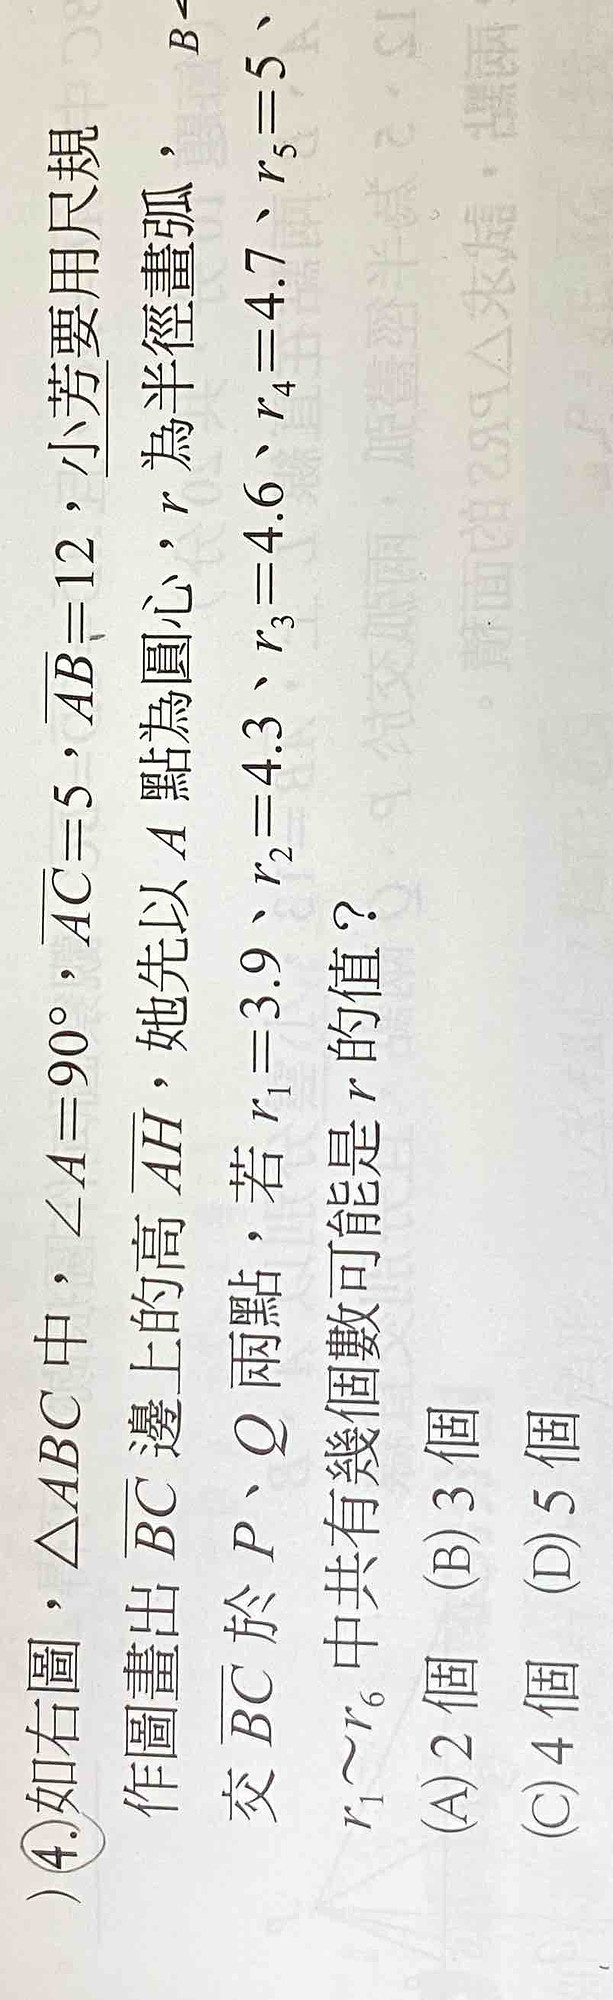 )4.如右圖，△ABC 中，∠A=90°，AC=5，AB=12，小芳要用尺規
作圖畫出 BC 邊上的高 AH，她先以 A 點為圓心，r 為半徑畫弧， B
交 BC 於 P、Q 兩點，若 r₁=3.9、r₂=4.3、r₃=4.6、r₄=4.7、r₅=5、
r₁～r₆ 中共有幾個數可能是 r 的值？
(A) 2 個 (B) 3 個
(C) 4 個 (D) 5 個